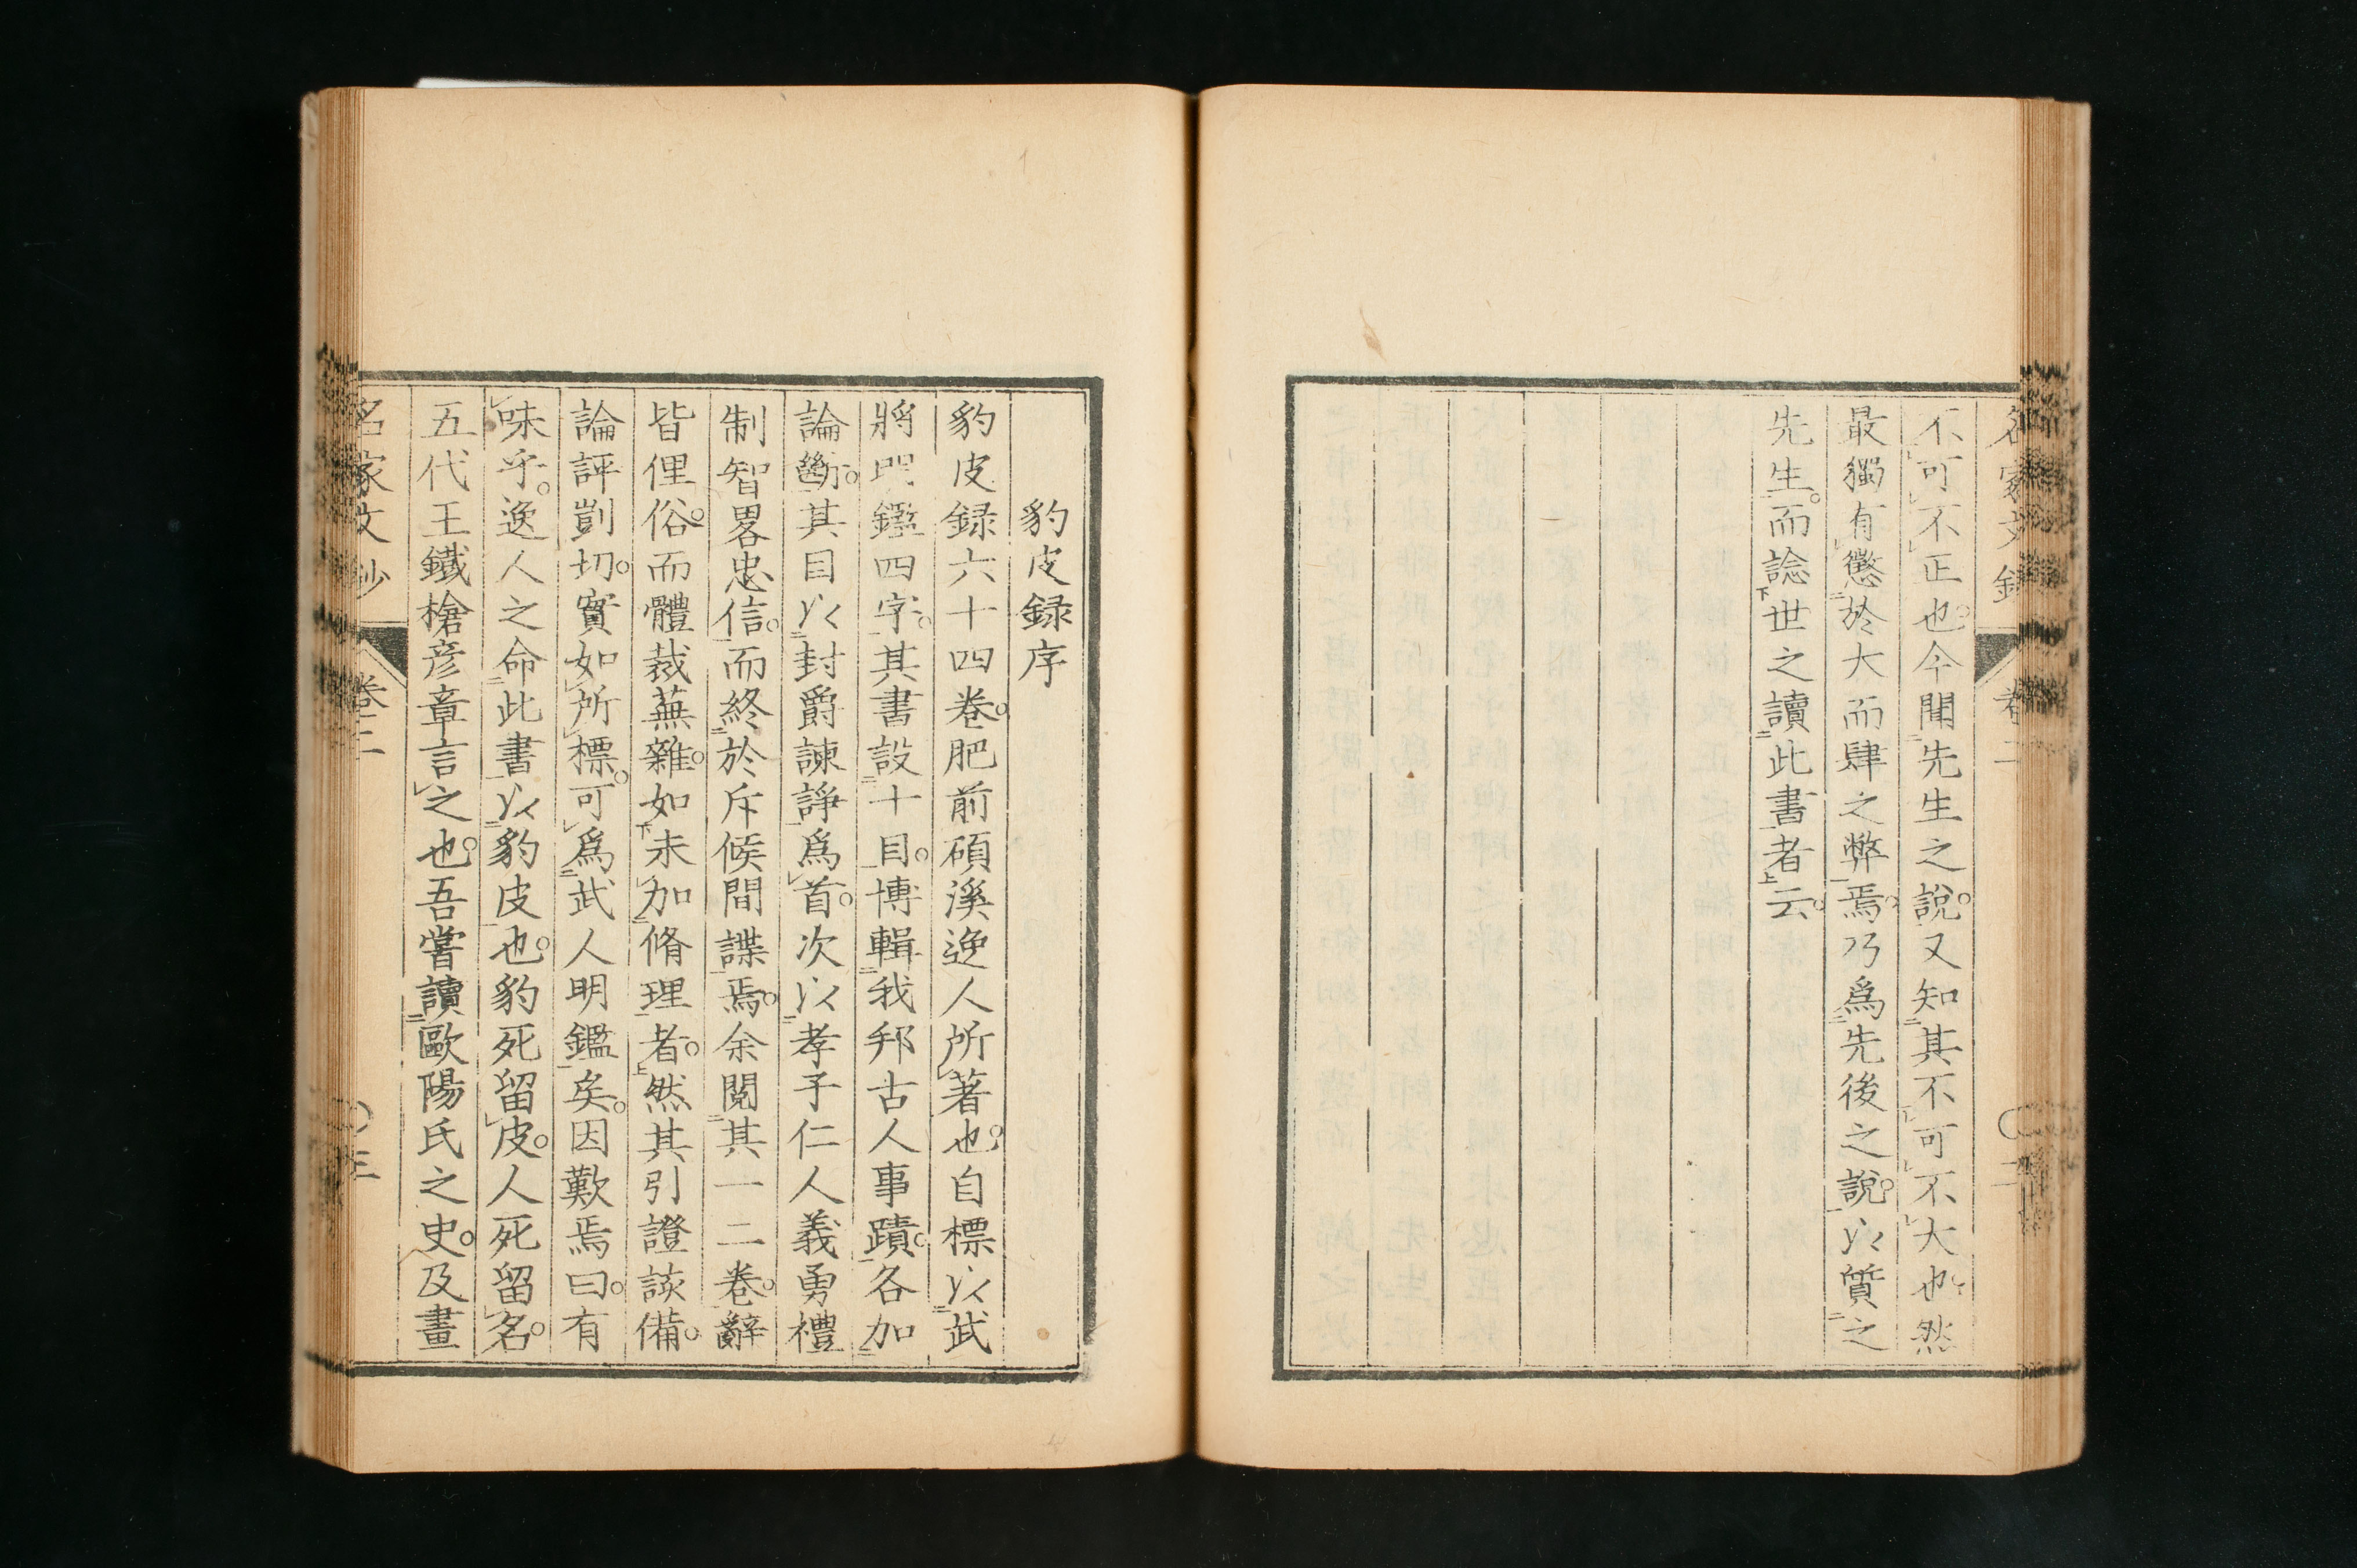 名家文鈔 卷二 〇二
不可不正也今聞先生之說又知其不可不大也然
最獨有懲於大而肆之弊焉乃爲先後之說以質之
先生而諗世之讀此書者云
豹皮録序
豹皮録六十四卷肥前碩溪逸人所著也自標以武
將明鑑四字其書設十目博輯我邦古人事蹟各加
論斷其目以封爵諫諍爲首次以孝子仁人義勇禮
制智畧忠信而終於斥候間諜焉余閲其一二卷辭
皆俚俗而體裁蕪雜如未加脩理者然其引證該備
論評剴切實如所標可爲武人明鑑矣因歎焉曰有
味乎逸人之命此書以豹皮也豹死留皮人死留名
五代王鐵槍彦章言之也吾嘗讀歐陽氏之史及畫
名家文鈔 卷二 〇三